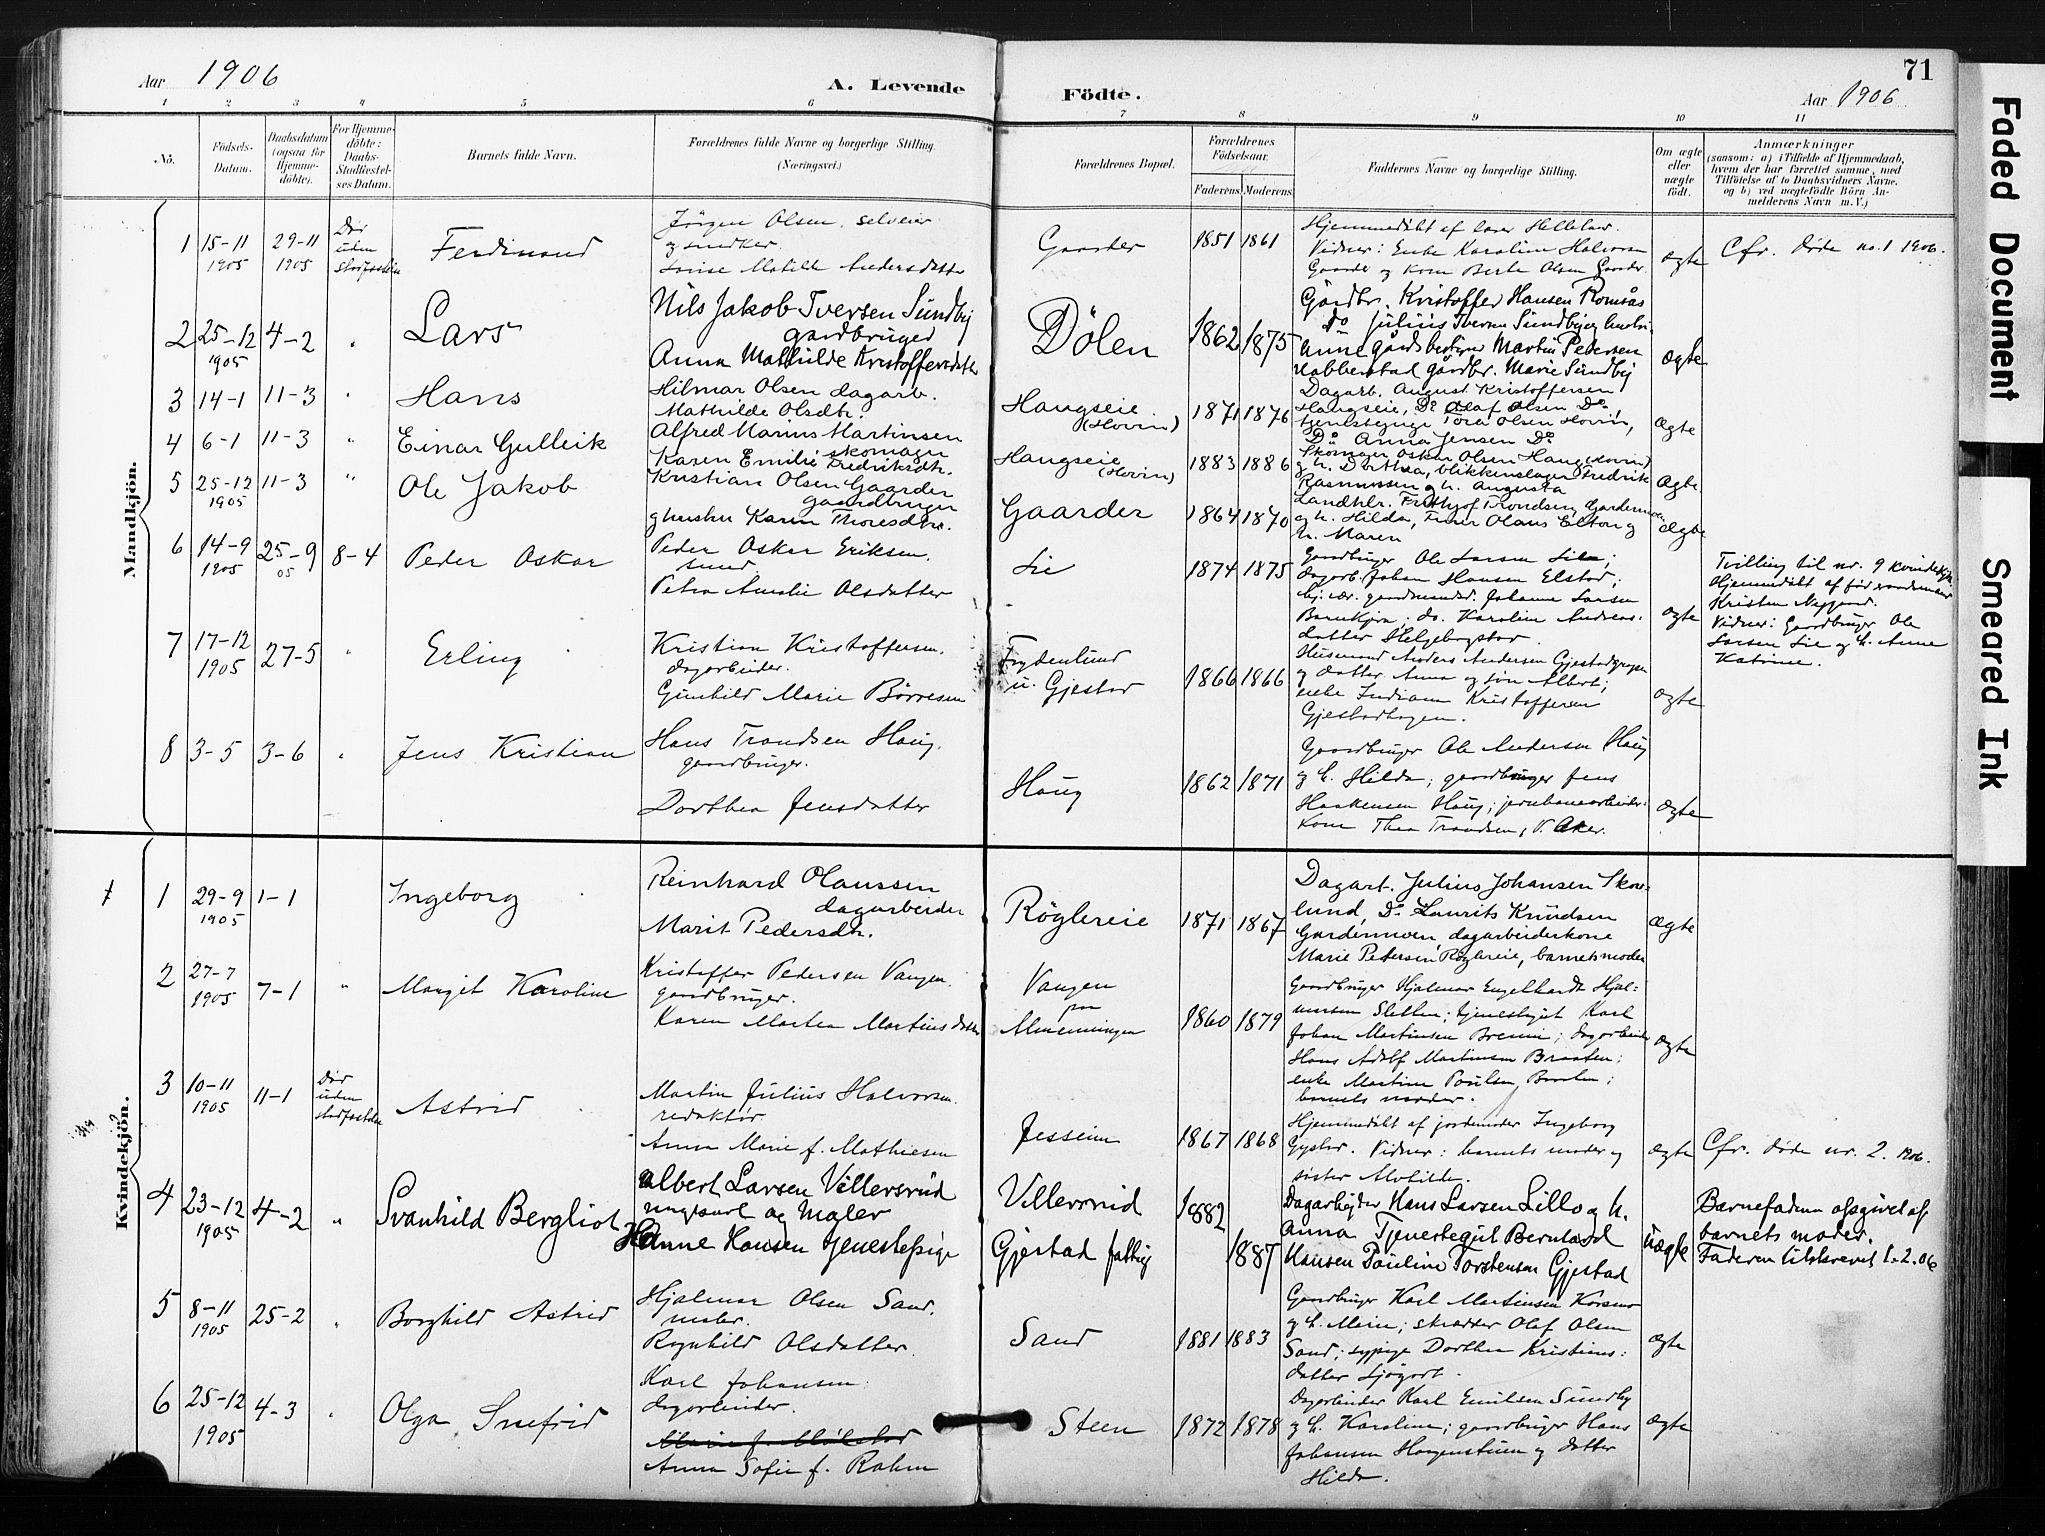 Aar 1906
A. Levende Födte.
71
Aar 1906
1 2 3 4 5 6 7 8 9 10 11
No.
Födsels-Datum.
Daabsdatum (ogsaa for Hjemme-döbte).
For Hjemme-döbte: Daabs-Stadfæstel-ses Datum.
Barnets fulde Navn.
Forældrenes fulde Navne og borgerlige Stilling.
(Næringsvei.)
Forældrenes Bopæl.
Forældrenes Födselsaar.
Faderens Moderens
Faddernes Navne og borgerlige Stilling.
Om ægte eller uægte födt.
Anmærkninger
(saasom: a) i Tilfælde af Hjemmedaab,
hvem der har forrettet samme, med
Tilföielse af to Daabsvidners Navne,
og b) ved uægtefödte Börn An-
melderens Navn m. V.)
Mandkjön.
1 15-11 1905 29-11 1905 Død uden stadfæstelse
Ferdinand
Jörgen Olsen, selveier
og snedker.
Lovise Matilde Andersdatter
Gaarder 1851 1861
Hjemmedøbt af lærer
Vidner: Enke Karoline Halvorsen
Gaarder og Kone Berte Olsen Gaarder.
ægte
Cfr. døde no. 1 1906.
2 25-12 1905 4-2 "
Lars
Nils Jakob Iversen Sundbij
gardbruger
Anna Mathilde Kristoffersdatter
Dölen 1862 1875
Gårdbr. Kristoffer Hansen Romsås
Do Julius Iversen Sundbij og hustru
Anne gårdsbestyrer Martin Pedersen
gårdbr. Marie Sundbij
Ægte
3 14-1 11-3 "
Hans
Hilmar Olsen dagarb.
Mathilde Olsdtr.
Haugseie (Hovin) 1871 1876
Dagarb. August Kristoffersen
Haugseie, Do Olaf Olsen Do,
tjenestepige Tora Olsen Hovin,
Do Anna Jensen Do
Ægte
4 6-1 11-3 "
Einar Gulleik
Alfred Marius Martinsen
skomager
Karen Emilie Fredriksdtr.
Haugseie (Hovin) 1883 1886
Skomager Oskar Olsen Haug (Hovin)
og h. Dorthea, blikkenslager Fredrik
Rasmussen og h. Augusta
Ægte
5 25-12 1905 11-3 "
Ole Jakob
Kristian Olsen Gaarder
gaardbruger
og hustru Karen Thoresdtr.
Gaarder 1864 1870
Landhdlr. Frithjof Trondsen, Gardermoen
og h. Hilda, Olaus Elton og
h. Maren
Ægte
6 14-9 1905 25-9 05 8-4
Peder Oskar
Peder Oskar Eriksen.
smed
Petra Amalie Olsdatter
Lie 1874 1875
Gaardbruger Ole Larsen Lie;
dagarb. Johan Hansen Elstad;
gaardmandsd. Johanne Larsen
do. Karoline Andreas-
datter Helgebostad.
ægte
Tvilling til nr. 9 kvindekjön.
Hjemmedøbt af
Kristen Nygaard.
Vidner: Gaardbruger Ole
Larsen Lie og h. Anne
Katrine.
7 17-12 1905 27-5 "
Erling
Kristian Kristoffersen.
dagarbeider.
Gunhild Marie Börresen
Frydenlund
u. Gjestad 1866 1866
Husmand Anders Andersen
og datter Anna og søn Albert;
enke Indiane Kristoffersen
Gjestadhagen.
ægte
8 3-5 3-6 "
Jens Kristian
Hans Trondsen Haug.
gaardbruger.
Dorthea Jensdatter
Haug 1862 1871
Gaardbruger Ole Andersen Haug
og h. Hilda; gaardbruger Jens
Haakensen Haug; jernbanearbeider-
kone Thea Trondsen, V. Aker.
ægte
Kvindekjön.
1 29-9 1905 1-1
Ingeborg
Reinhard Olaussen
dagarbeider
Marit Pedersdtr.
Röglereie 1871 1867
Dagarb. Julius Johansen Skov-
lund, Do Laurits Knudsen
Gardermoen, dagarbeiderskone
Marie Petersen, Röglereie, barnets moder
Ægte
2 27-7 1905 7-1 "
Margit Karoline
Kristoffer Pedersen Vangen
gaardbruger.
Karen Martea Martinsdatter
Vangen
paa
Almenningen 1860 1879
Gaardbruger Hjalmar Engelhardt Hjal-
marsen Sletten; tjenestegut Karl
Johan Martinsen Brenni; dagarbeider
Hans Adolf Martinsen Braaten;
enke Martine Poulsen Braaten;
barnets moder.
ægte
3 10-11 1905 11-1 Død uden stadfæstelse
Astrid
Martin Julius Halvorsen.
redaktør
Anna Marie f. Mathiesen
Jessheim 1867 1868
Hjemmedøbt af jordemoder Ingeborg
Vidner: barnets moder og
søster Matilde.
ægte
Cfr. døde nr. 2. 1906.
4 23-12 1905 4-2 "
Svanhild Bergliot
Albert Larsen Villersrud
ungkarl og Maler
Hanne Hansen tjenestepige
Villersrud 1882
Gjestad fattig 1887
Dagarbejder Hans Larsen Lillo og h.
Anna Tjenestegut Bernhard
Hansen Pauline Torstensen Gjestad
Uægte
Barnefaderen opgivet af
barnets moder.
Faderen tilskrevet 1.2.06
5 8-11 1905 25-2 "
Borghild Astrid
Hjalmar Olsen Sand.
maler.
Ragnhild Olsdatter.
Sand 1881 1883
Gaardbruger Karl Martinsen Korsmo
og h. Marie; skrædder Olaf Olsen
Sand; sypige Dorthea Kristians-
datter Sjøgort.
ægte
6 25-12 1905 4-3 "
Olga Snefrid
Karl Johansen
dagarbeider.
Marie f. Mölstad
Anna Sofie f. Rahm
Steen 1872 1878
Dagarbeider Karl Emilsen Sundby
og h. Karoline; gaardbruger Hans
Johansen Haugenstuen og datter
Hilda.
ægte
Faded Document
Smeared Ink